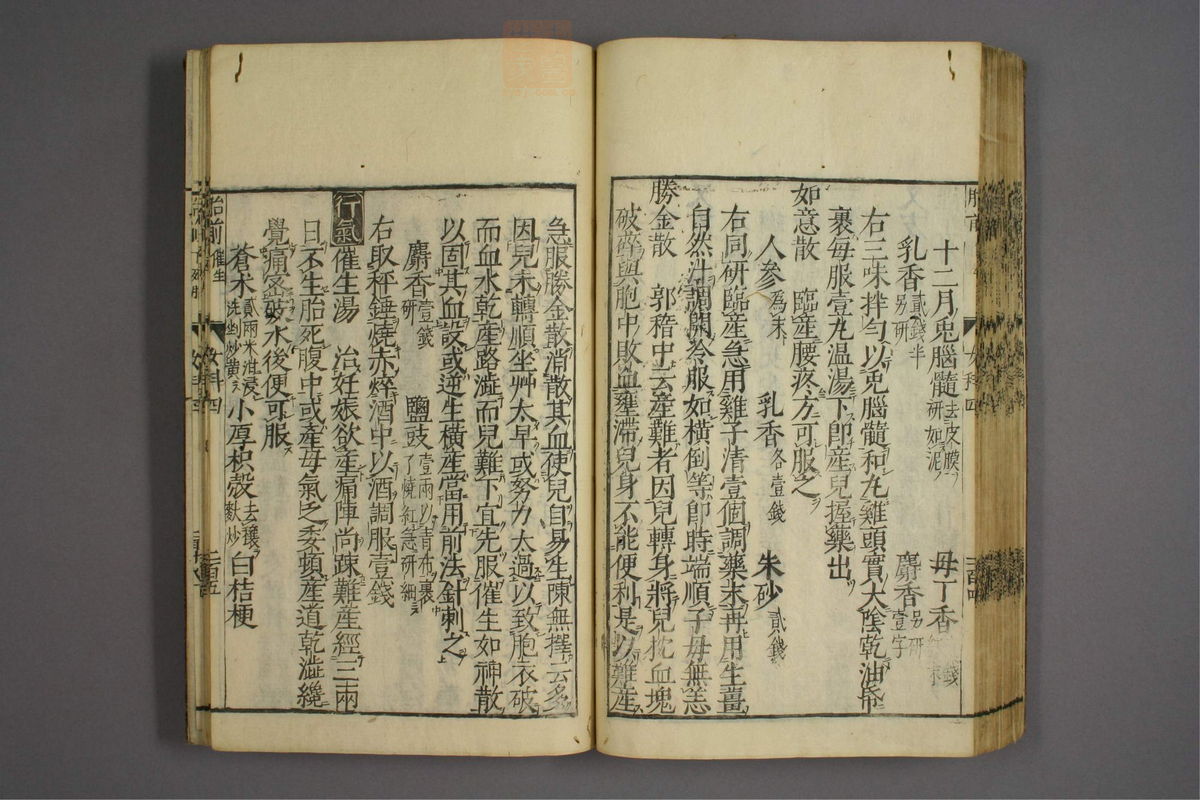 十二月兎腦髓去皮膜研如泥　毋丁香
乳香貳錢半另研　麝香另研壹字
右三味拌勻以兎腦髓和丸雞頭實大陰乾油帋
裹每服壹丸溫湯下即產兒握藥出
如意散　臨產腰疼方可服之
人參為末　乳香各壹錢　朱砂貳錢
右同研臨產急用雞子清壹個調藥末再用生薑
自然汁調開冷服如橫倒等即時端順子母無恙
勝金散　郭稽中云產難者因兒轉身將兒枕血塊
破碎與胞中敗血壅滯兒身不能便利是以難產
急服勝金散消散其血使兒自易生陳無擇云多
因兒未轉順坐艸太早或努力太過以致胞衣破
而血水乾產路澁而兒難下宜先服催生如神散
以固其血設或逆生橫產當用前法針刺之
麝香壹錢研　鹽豉壹兩以青布裹了燒紅急研細
右取秤錘燒赤焠酒中以酒調服壹錢
行氣催生湯　治妊娠欲產痛陣尚疎難產經三兩
日不生胎死腹中或產母氣乏委頓產道乾澁纔
覺痛密破水後便可服
蒼朮貳兩米泔浸洗剉炒黃　小厚枳殼去穰麩炒　白桔梗
胎前　催生
女科四